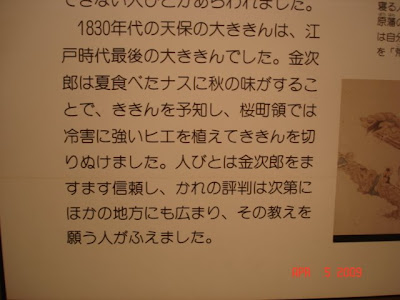 できない人びとがあらわれました。
1830年代の天保の大ききんは、江
戸時代最後の大ききんでした。金次
郎は夏食べたナスに秋の味がするこ
とで、ききんを予知し、桜町領では
冷害に強いヒエを植えてききんを切
りぬけました。人びとは金次郎をま
すます信頼し、かれの評判は次第に
ほかの地方にも広まり、その教えを
願う人がふえました。
寝る人
原藩の
は自分